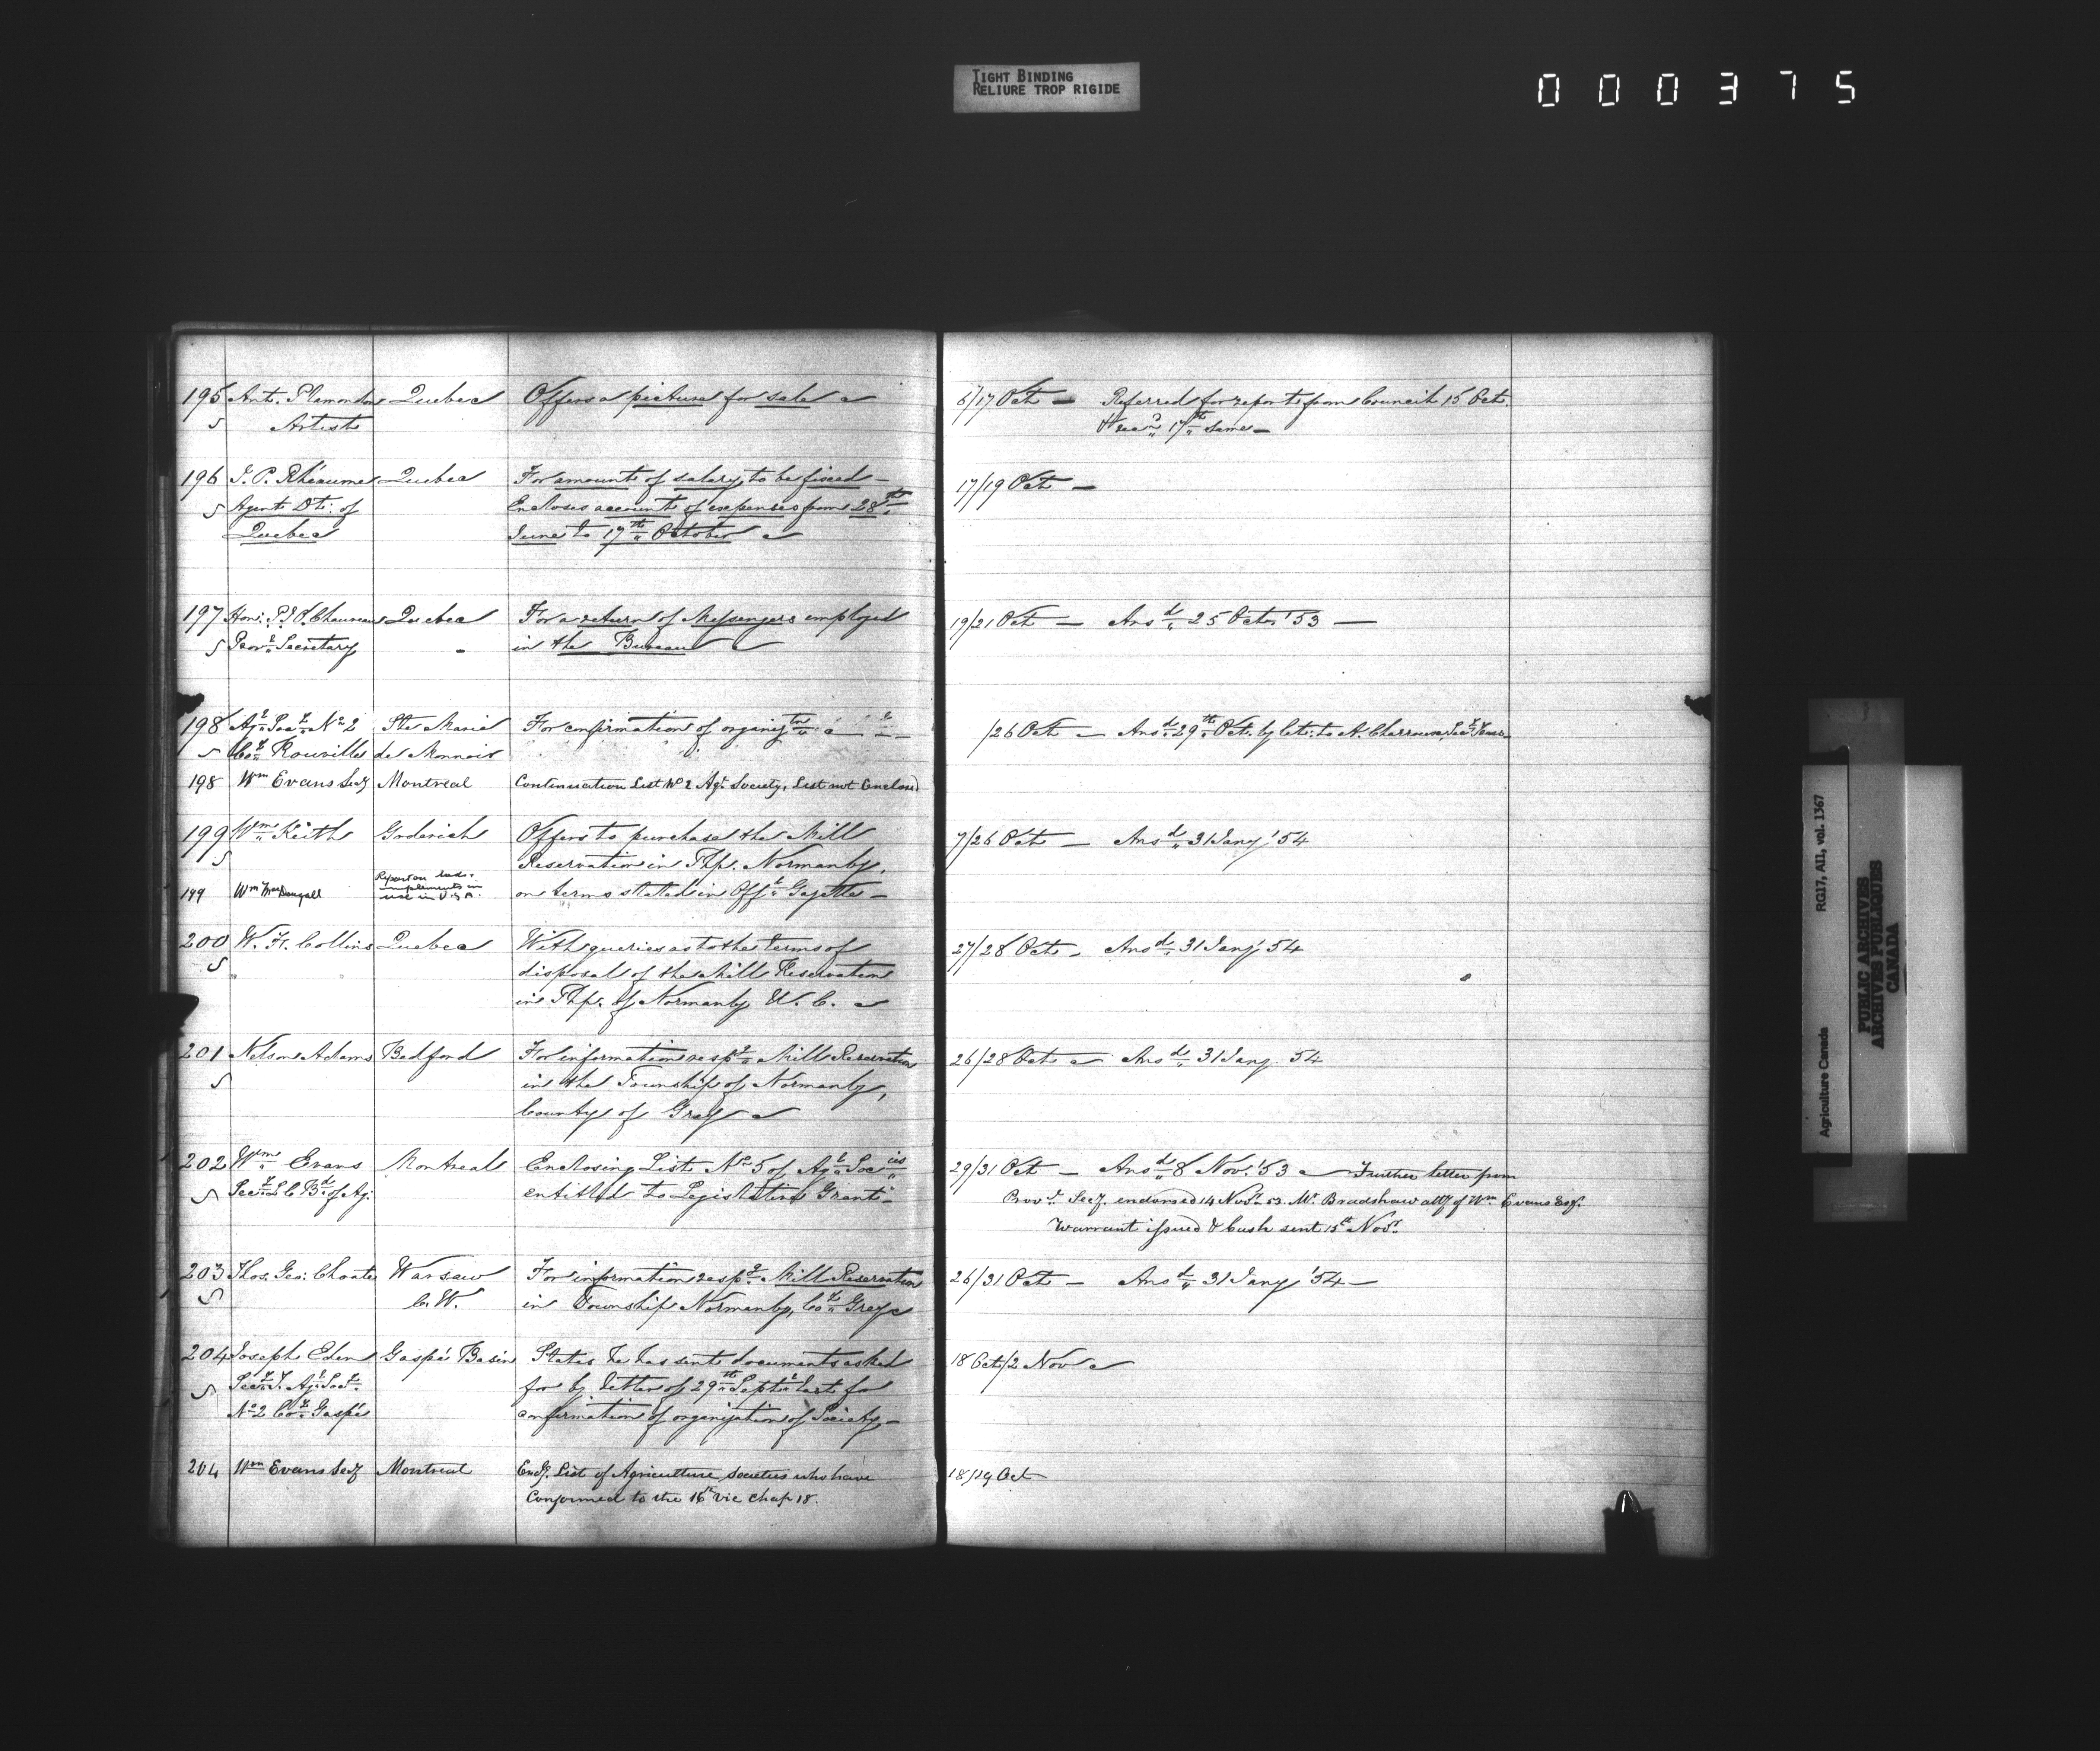 TIGHT BINDING
RELIURE TROP RIGIDE
000375
195 Ant. Plamondon Quebec Offers a picture for sale 6/17 Oct — Referred for report from Council 15 Oct.
Artist 17th same —
196 J. P. Rhéaume Quebec For amount of salary to be fixed — 17/19 Oct —
Agent Dt: of Encloses account of expenses from 28th
Quebec June to 17th October
197 Hon: P. J. O. Chauveau Quebec For a return of Messengers employed 19/21 Oct — Ansd 25 Octr '53 —
Provl Secretary in the Bureau
198 Agl Socy No 2 Ste Marie For confirmation of organiztn /26 Oct — Ansd 29th Oct. by letr to
Coy Rouville de Monnoir
198 Wm Evans Secy Montreal Continuation List No 2 Agl Society, List not Enclosed
199 Wm Keith Goderich Offers to purchase the Mill 7/26 Oct — Ansd 31 Jany '54
Reservation in Tkp. Normanby,
199 Wm MacDougall Report on implements in use in U.S.A. on terms stated in Offl Gazette —
200 W. H. Collins Quebec With queries as to the terms of 27/28 Oct — Ansd 31 Jany 54
disposal of the Mill Reservation
in Tkp. of Normanby U. C.
201 Nelson Adams Bedford For information respg Mill Reservation 26/28 Oct — Ansd 31 Jany 54
in the Township of Normanby,
County of Grey
202 Wm Evans Montreal Enclosing List No 5 of Agl Socies 29/31 Oct — Ansd 8 Nov. '53 — Further letter from
Secy L C Bd of Ag: entitled to Legislative Grant — Provl Secy. endorsed 14 Novr 53. Mr Bradshaw atty of Wm Evans Esqr.
Warrant issued & Cash sent 15th Novr
203 Thos. Geo: Choate Warsaw For information respg Mill Reservation 26/31 Oct — Ansd 31 Jany '54 —
C. W. in Township Normanby, Coy Grey
204 Joseph Eden Gaspé Basin States he has sent documents asked 18 Oct/2 Nov
Secy T. Agl Socy for by letter of 29th Septr last for
No 2 Coy Gaspé confirmation of organization of Society —
204 Wm Evans Secy Montreal Encg. List of Agriculture societies who have 18/19 Oct
Conformed to the 16th Vic Chap 18.
Agriculture Canada RG17, AII, vol. 1367
PUBLIC ARCHIVES
ARCHIVES PUBLIQUES
CANADA